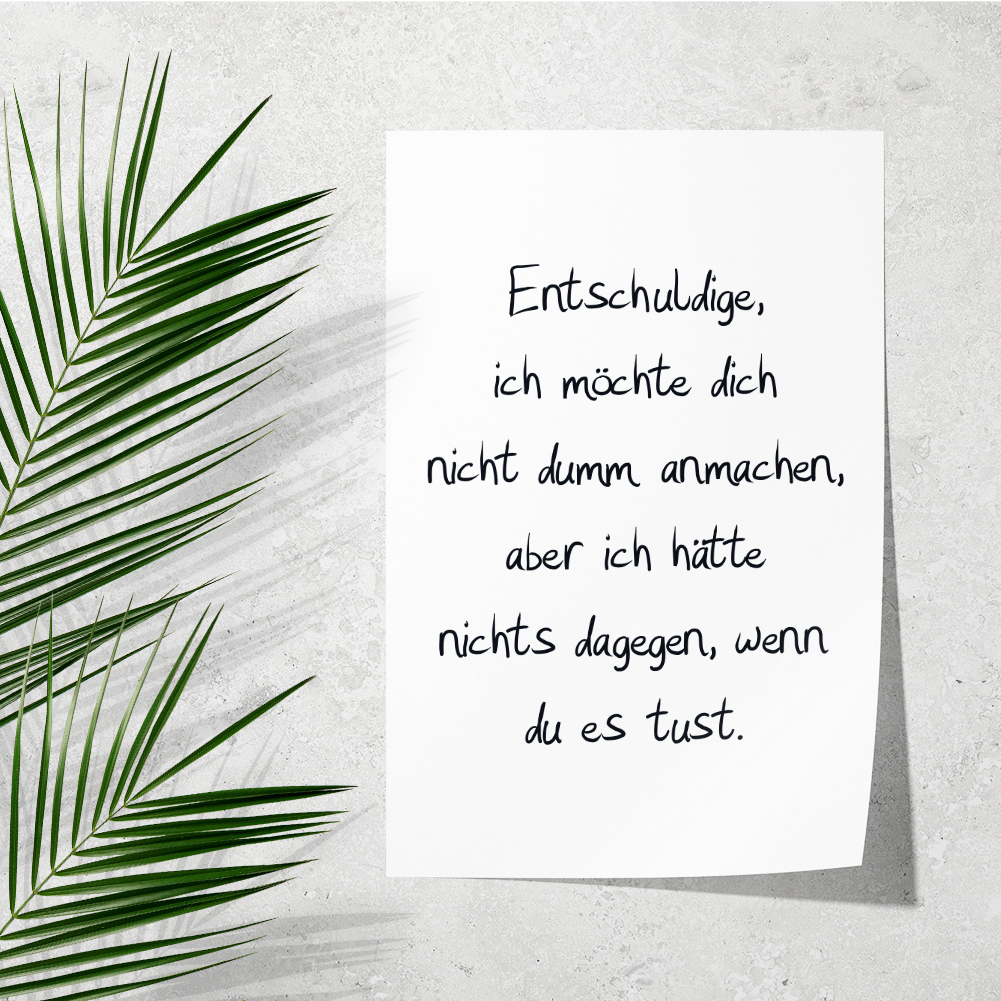 Entschuldige,
ich möchte dich
nicht dumm anmachen,
aber ich hätte
nichts dagegen, wenn
du es tust.